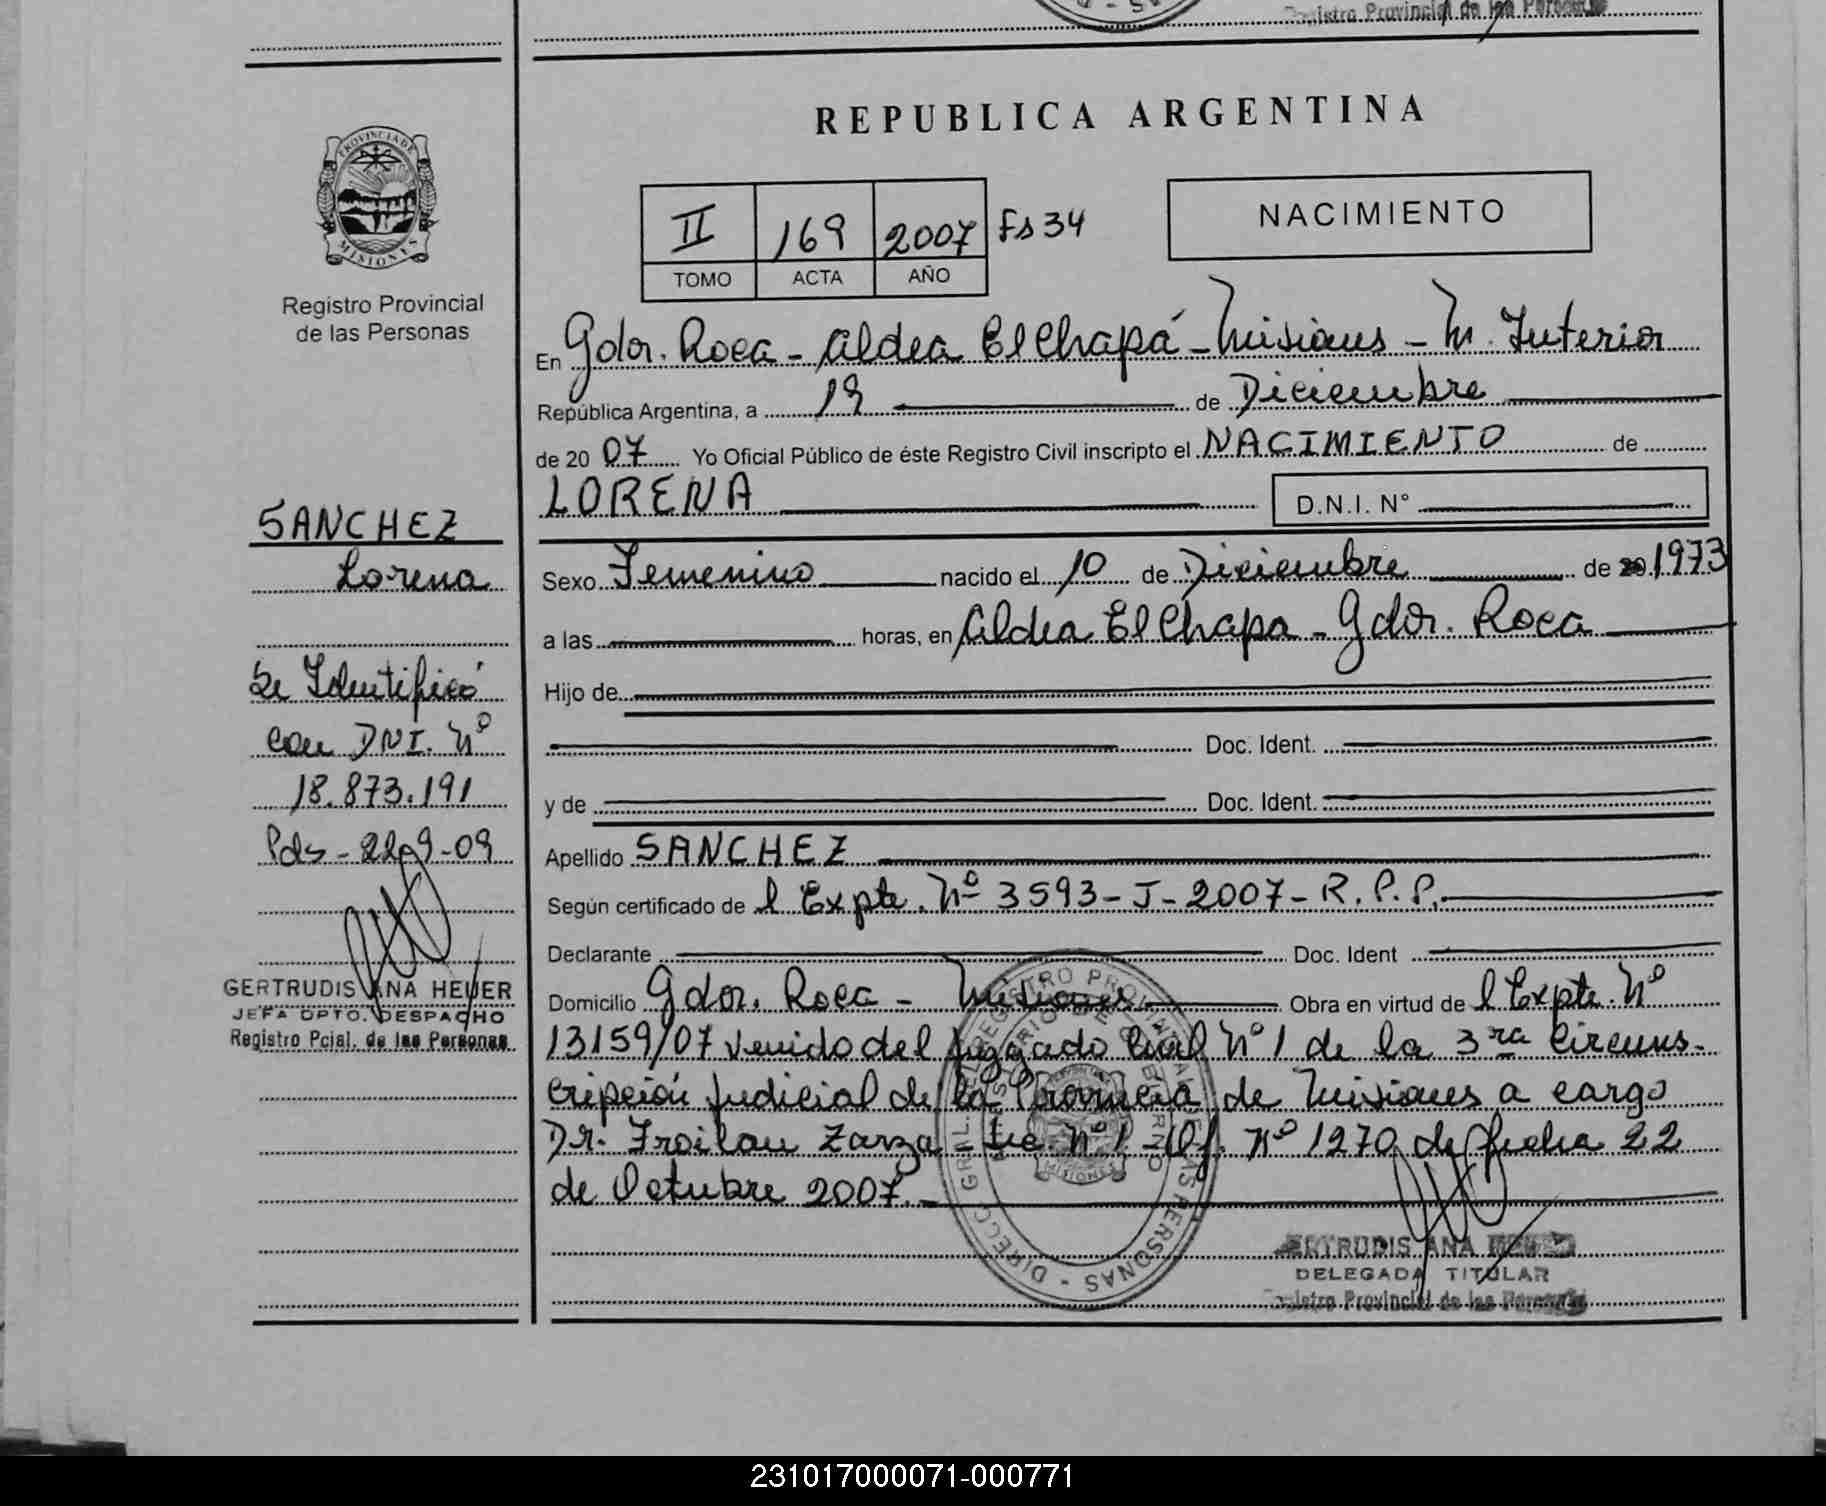 Registro Provincial de las Personas
REPUBLICA ARGENTINA
PROVINCIA DE
MISIONES
Registro Provincial
de las Personas
II 169 2007 Fs 34
TOMO ACTA AÑO
NACIMIENTO
En Gdor. Roca - Aldea El Chapá - Misiones - M. Interior
República Argentina, a 19 de Diciembre
de 20 07 Yo Oficial Público de éste Registro Civil inscripto el NACIMIENTO de
LORENA D.N.I. N°
Sexo Femenino nacido el 10 de Diciembre de 20 1973
a las horas, en Aldea El Chapa - Gdor. Roca
Hijo de
Doc. Ident.
y de Doc. Ident.
Apellido SANCHEZ
Según certificado de l Expte. Nº 3593-J-2007-R.P.P.
Declarante Doc. Ident
Domicilio Gdor. Roca - Misiones Obra en virtud de l Expte. Nº
13159/07 venido del Juzgado Civil Nº 1 de la 3ra Circuns-
cripción Judicial de la Provincia de Misiones a cargo
Dr. Froilan Zarza - Sec. Nº 1 - Of. Nº 1270 de fecha 22
de Octubre 2007.
GERTRUDIS ANA
DELEGADA TITULAR
Registro Provincial de las Personas
SANCHEZ
Lorena
Se Identificó
con DNI. Nº
18.873.191
Pds - 22-9-09
GERTRUDIS ANA HEUER
JEFA DPTO. DESPACHO
Registro Pcial. de las Personas
231017000071-000771